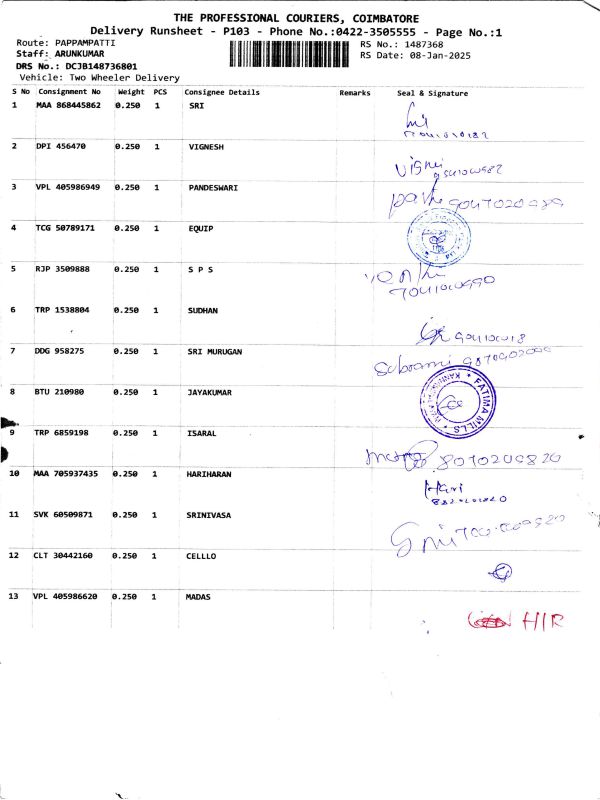 THE PROFESSIONAL COURIERS, COIMBATORE
Delivery Runsheet - P103 - Phone No.:0422-3505555 - Page No.:1
Route: PAPPAMPATTI RS No.: 1487368
Staff: ARUNKUMAR RS Date: 08-Jan-2025
DRS No.: DCJB148736801
Vehicle: Two Wheeler Delivery
S No Consignment No Weight PCS Consignee Details Remarks Seal & Signature
1 MAA 868445862 0.250 1 SRI
2 DPI 456470 0.250 1 VIGNESH
3 VPL 405986949 0.250 1 PANDESWARI
4 TCG 50789171 0.250 1 EQUIP
5 RJP 3509888 0.250 1 S P S
6 TRP 1538804 0.250 1 SUDHAN
7 DDG 958275 0.250 1 SRI MURUGAN
8 BTU 210980 0.250 1 JAYAKUMAR
FATIMA MILLS
9 TRP 6859198 0.250 1 ISARAL
10 MAA 705937435 0.250 1 HARIHARAN
Hari
11 SVK 60509871 0.250 1 SRINIVASA
12 CLT 30442160 0.250 1 CELLLO
13 VPL 405986620 0.250 1 MADAS